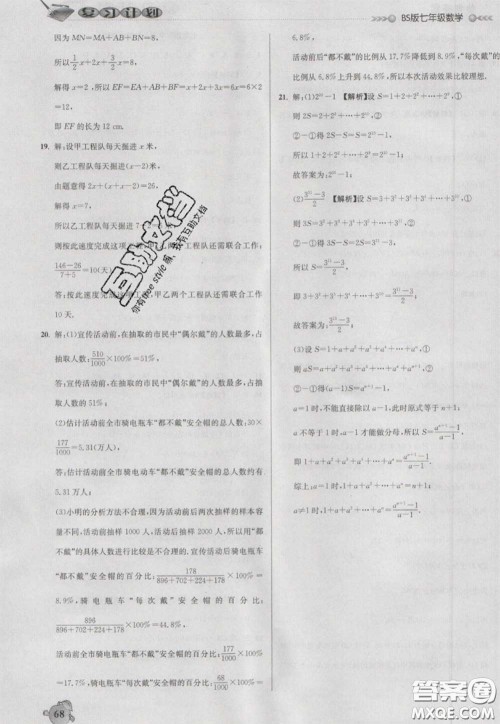 复习计划
BS版七年级数学
因为 MN=MA+AB+BN=8,
所以 1/2x+2x+3/2x=8.
解得 x=2,所以 EF=EA+AB+BF=2x+2x+2x=6x=12.
即 EF 的长为 12 cm.
19. 解:设甲工程队每天掘进 x 米,
则乙工程队每天掘进(x-2)米.
由题意得 2x+(x-2)
解得 x=7.
所以乙工程队每天掘进 7-2
则按此速度完成这项 队还需联合工作
(146-26)/(7+5)=10(天).
答:按此速度完成 甲乙两个工程队还需联合工作
10 天.
20. 解:(1)宣传活动前,在抽取的市民中“偶尔戴”的人数最多,占
抽取人数:510/1000×100%=51%.
答:宣传活动前,在抽取的市民中“偶尔戴”的人数最多,占抽取
人数的 51%;
(2)估计活动前全市骑电瓶车“都不戴”安全帽的总人数:30×
177/1000=5.31(万人).
答:估计活动前全市骑电瓶车“都不戴”安全帽的总人数约有
5.31 万人;
(3)小明的分析方法不合理,因为活动前后两次抽样的样本容
量不同,活动前抽样 1000 人,活动后抽样 2000 人,所以用“都不
戴”的具体人数进行比较是不合理的.宣传活动后骑电瓶车
“都不戴”安全帽的百分比:178/(896+702+224+178)×100%=
8.9%,骑电瓶车“每次戴”安全帽的百分比:
896/(896+702+224+178)×100%=44.8%,
活动前全市骑电瓶车“都不戴”安全帽的百分比:177/1000×100%
=17.7%,骑电瓶车“每次戴”安全帽的百分比:68/1000×100%=
68
6.8%.
活动前后“都不戴”的比例从 17.7%降低到 8.9%,“每次戴”的
比例从 6.8%上升到 44.8%,所以本次活动效果比较理想.
21. 解:(1)2¹¹-1 【解析】设 S=1+2+2²+…+2¹⁰,①
则 2S=2+2²+2³+…+2¹¹,②
②-①得 2S-S=S=2¹¹-1.
所以 1+2+2²+…+2¹⁰=2¹¹-1.
故答案为:2¹¹-1;
(2)(3¹¹-3)/2 【解析】设 S=3+3²+3³+3⁴+…+3¹⁰,①
则 3S=3²+3³+3⁴+3⁵+…+3¹¹,②
②-①得 2S=3¹¹-3,
所以 S=(3¹¹-3)/2.
故答案为:(3¹¹-3)/2;
(3)设 S=1+a+a²+a³+a⁴+…+aⁿ,①
则 aS=a+a²+a³+a⁴+…+aⁿ+aⁿ⁺¹,②
②-①得:(a-1)S=aⁿ⁺¹-1,
a=1 时,不能直接除以 a-1,此时原式等于 n+1;
a 不等于 1 时,a-1 才能做分母,所以 S=(aⁿ⁺¹-1)/(a-1),
即 1+a+a²+a³+a⁴+…+aⁿ=(aⁿ⁺¹-1)/(a-1).
综上:a=1 时,原式=n+1;
a≠1 时,原式=(aⁿ⁺¹-1)/(a-1).
互助文档
你有free style嘛,我有互助文档
答案圈
MXQE.COM